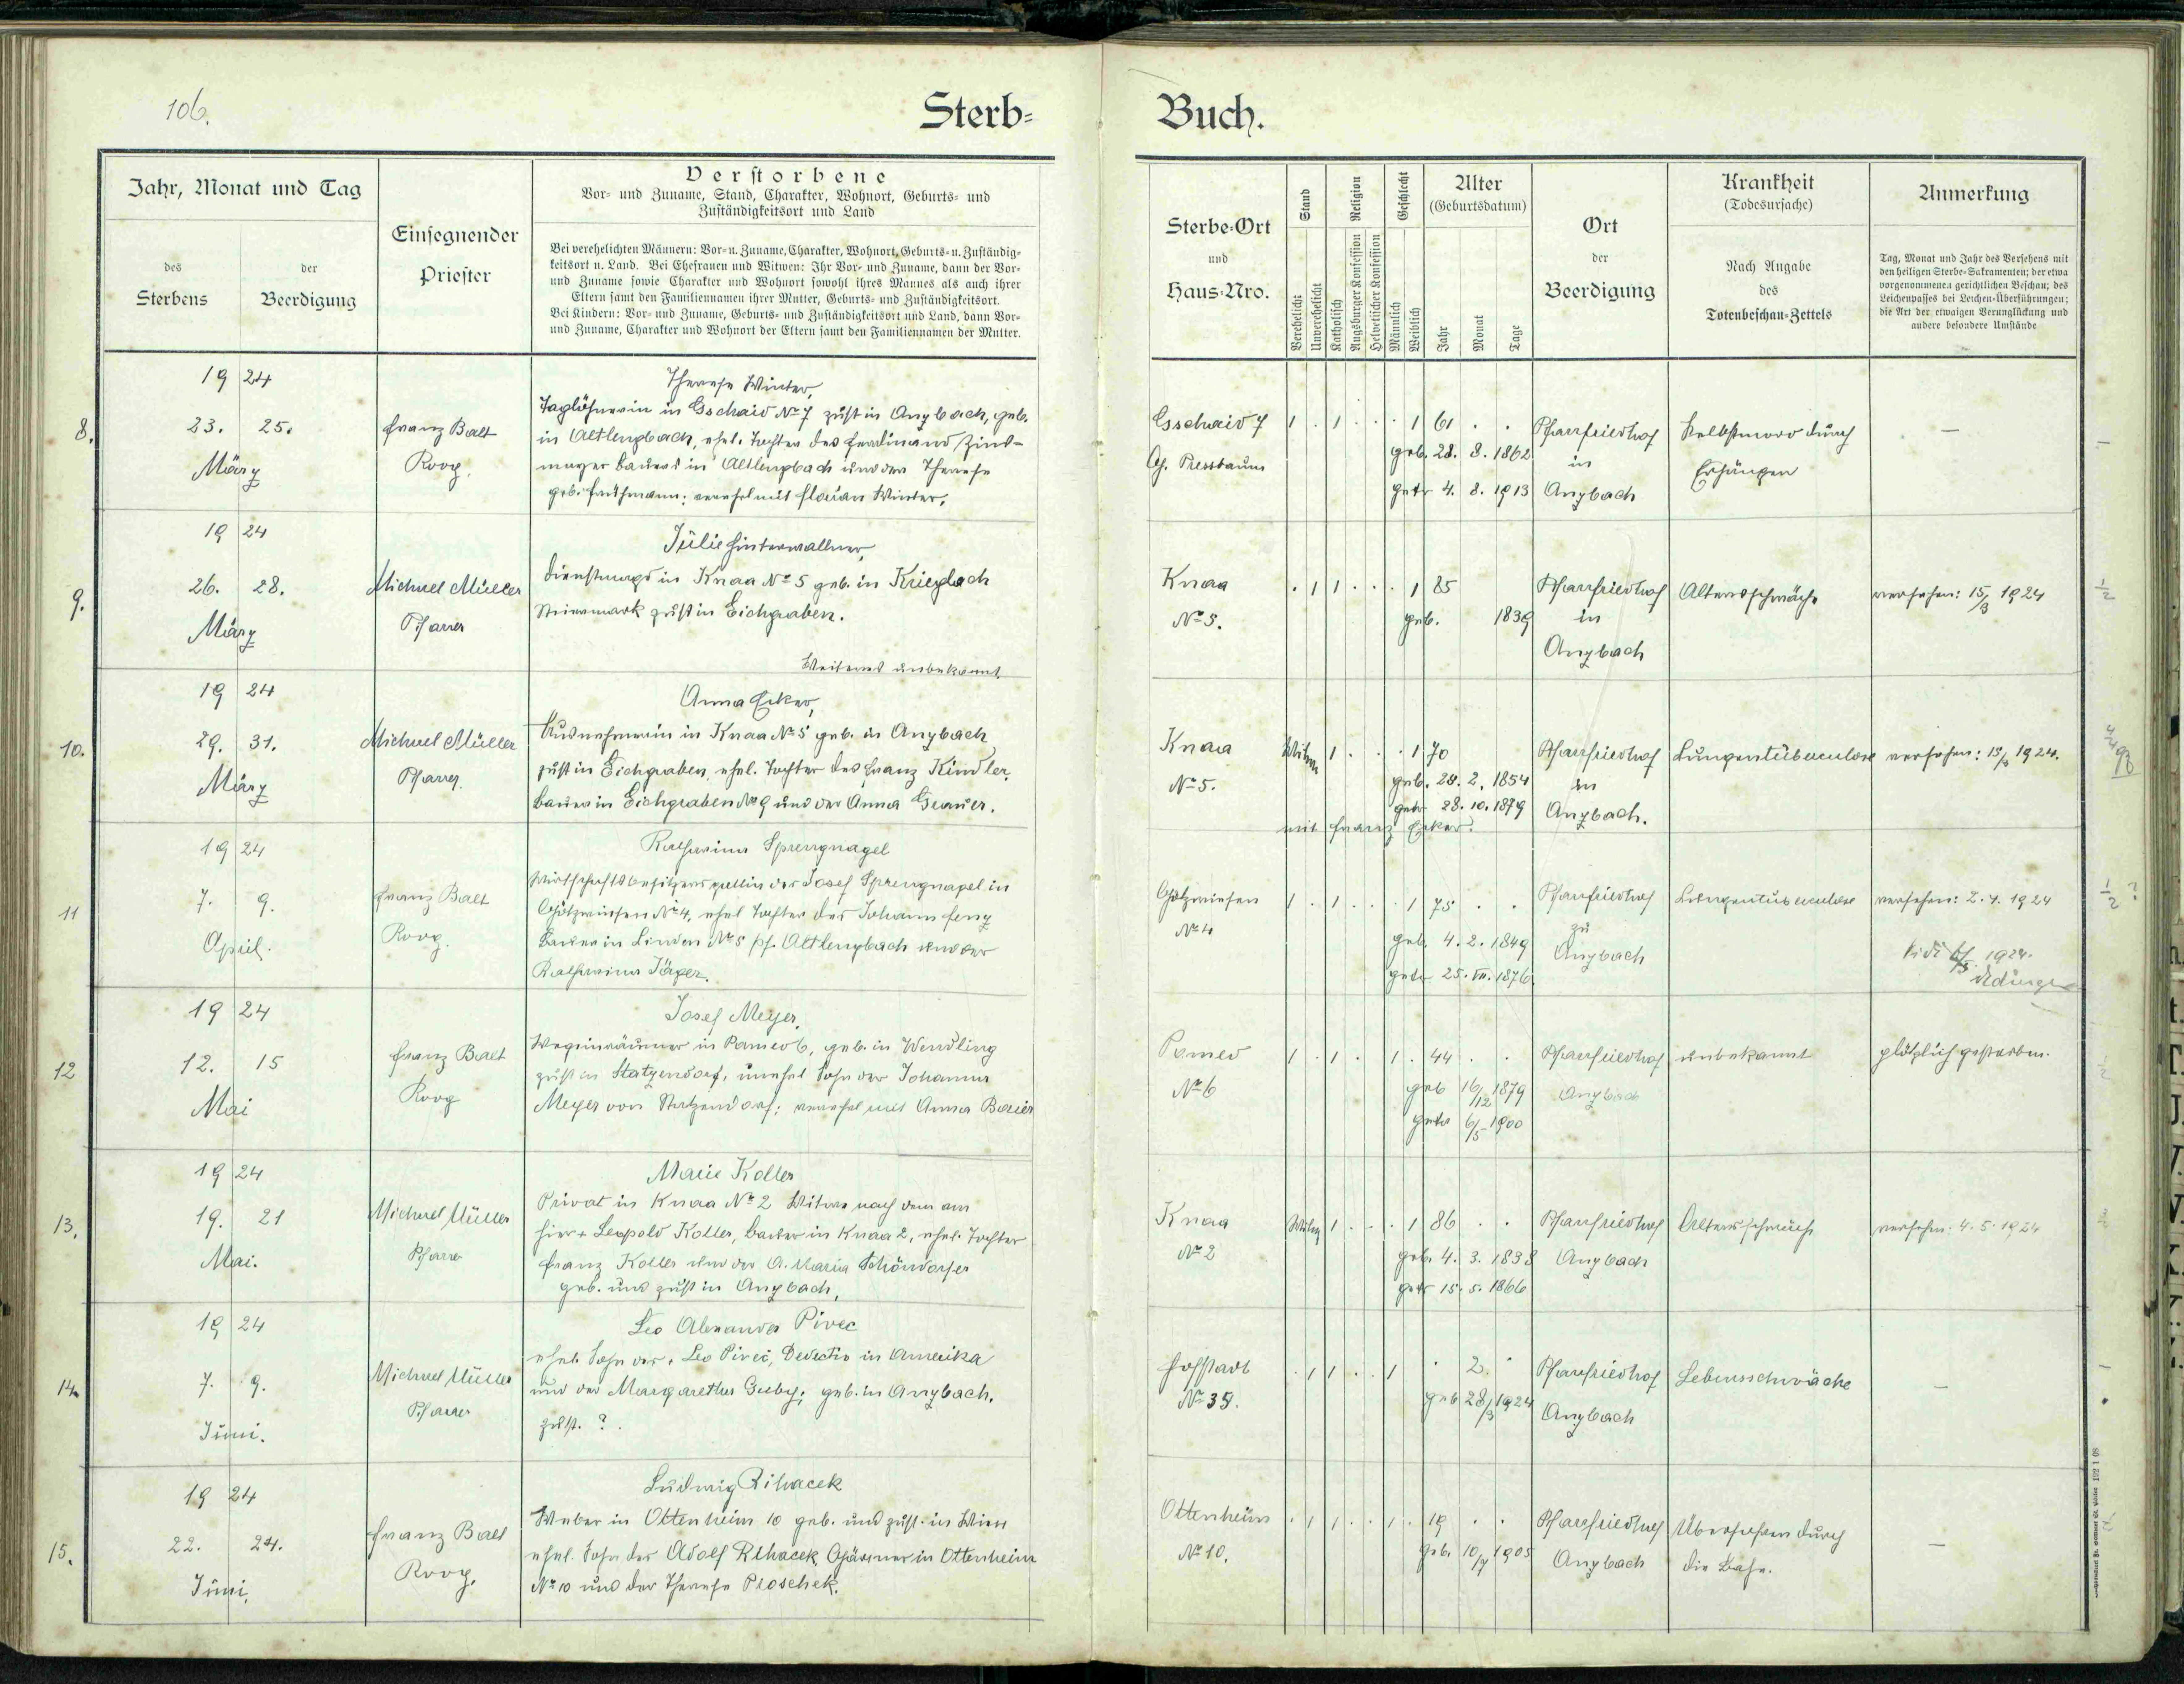 106.
Sterb-
Buch.
Jahr, Monat und Tag
des
Sterbens
der
Beerdigung
Einsegnender
Priester
Verstorbene
Vor- und Zuname, Stand, Charakter, Wohnort, Geburts- und
Zuständigkeitsort und Land
Bei verehelichten Männern: Vor- u. Zuname, Charakter, Wohnort, Geburts- u. Zuständig-
keitsort u. Land. Bei Ehefrauen und Witwen: Ihr Vor- und Zuname, dann der Vor-
und Zuname sowie Charakter und Wohnort sowohl ihres Mannes als auch ihrer
Eltern samt den Familiennamen ihrer Mutter, Geburts- und Zuständigkeitsort.
Bei Kindern: Vor- und Zuname, Geburts- und Zuständigkeitsort und Land, dann Vor-
und Zuname, Charakter und Wohnort der Eltern samt den Familiennamen der Mutter.
Sterbe-Ort
und
Haus-Nro.
Stand
Verehelicht
Unverehelicht
Religion
Katholisch
Augsburger Konfession
Helvetischer Konfession
Geschlecht
Männlich
Weiblich
Alter
(Geburtsdatum)
Jahr
Monat
Tage
Ort
der
Beerdigung
Krankheit
(Todesursache)
Nach Angabe
des
Totenbeschau-Zettels
Anmerkung
Tag, Monat und Jahr des Versehens mit
den heiligen Sterbe-Sakramenten; der etwa
vorgenommenen gerichtlichen Beschau; des
Leichenpasses bei Leichen-Überführungen;
die Art der etwaigen Verunglückung und
andere besondere Umstände
8.
19 24
23. 25.
März
Franz Balt
Koop.
Therese Winter,
Taglöhnerin in Gschaid No 7 zust in Anzbach, geb.
in Altlengbach, ehel. Tochter des Ferdinand Zins-
mayer Bauers in Altlengbach und der Therese
verehel mit Florian Winter.
Gschaid 7
G. Pressbaum
1 . 1 . . . 1 61 . .
geb. 28. 8. 1862
getr 4. 8. 1913
Pfarrfriedhof
in
Anzbach
Selbstmord durch
Erhängen
—
9.
19 24
26. 28.
März
Michael Müller
Pfarrer
Julie Hinterwallner,
Dienstmagd in Knaa No 5 geb. in Krieglach
Steiermark zust in Eichgraben.
Weiteres unbekannt.
Knaa
No 5.
. 1 1 . . . 1 85
geb. 1839
Pfarrfriedhof
in
Anzbach
Altersschwäche
versehen: 15/3 1924
10.
19 24
29. 31.
März
Michael Müller
Pfarrer
Anna Ecker,
Ausnehmerin in Knaa No 5 geb. in Anzbach
zust in Eichgraben, ehel. Tochter des Franz Kindler,
Bauer in Eichgraben No 9 und der Anna Grauer.
Knaa
No 5.
Witwe 1 . . . 1 70
geb. 28. 2. 1854
getr. 28. 10. 1879
mit Franz Ecker.
Pfarrfriedhof
in
Anzbach.
Lungentuberculose
versehen: 15/3 1924.
11
19 24
7. 9.
April.
Franz Balt
Koop.
Katharina Sprengnagel
Wirtschaftsbesitzersgattin des Josef Sprengnagel in
Götzwiesen No 4, ehel Tochter des Johann
Bauer in Linden No 5 Pf. Altlengbach und der
Katharina Jäger.
Götzwiesen
No 4
1 . 1 . . . 1 75 . .
geb. 4. 2. 1849
getr 25. VII. 1876
Pfarrfriedhof
zu
Anzbach
Lungentuberculose
versehen: 2. 4. 1924
Vidi 1924.
12
19 24
12. 15
Mai
Franz Balt
Koop
Josef Meyer,
Wegeinräumer in Pameo 6, geb. in Wendling
zust in Statzendorf, unehel Sohn der Johanna
Meyer von Statzendorf; verehel mit Anna Baier
Pameo
No 6
1 . 1 . . 1 . 44 . .
geb 16/12 1879
getr 6/5 1900
Pfarrfriedhof
Anzbach
unbekannt
plötzlich gestorben.
13.
19 24
19. 21
Mai.
Michael Müller
Pfarrer
Marie Koller
Privat in Knaa No 2 Witwe nach dem am
hier + Leopold Koller, Bauer in Knaa 2, ehel. Tochter
Franz Koller und der A. Maria Schöndorfer
geb. und zust in Anzbach,
Knaa
No 2
Witwe 1 . . . 1 86 . .
geb 4. 3. 1838
getr 15. 5. 1866
Pfarrfriedhof
Anzbach
Altersschwäche
versehen. 4. 5. 1924
14.
19 24
7. 9.
Juni.
Michael Müller
Pfarrer
Leo Alexander Pivec
ehel. Sohn des Leo Pivec, Dedectiv in Amerika
und der Margarethe geb. in Anzbach.
zust. ?.
Hofstadt
No 35.
. 1 1 . . 1 . 2 .
geb 28/3 1924
Pfarrfriedhof
Anzbach
Lebensschwäche
—
15.
19 24
22. 24.
Juni.
Franz Balt
Koop.
Ludwig Rihacek
Weber in Ottenheim 10 geb. und zust. in Wien
ehel. Sohn des Adolf Rihacek, Gärtner in Ottenheim
No 10 und der Therese Proschek.
Ottenheim
No 10.
. 1 1 . . 1 . 19 . .
geb. 10/7 1905
Pfarrfriedhof
Anzbach
Überfahren durch
die Bahn.
—